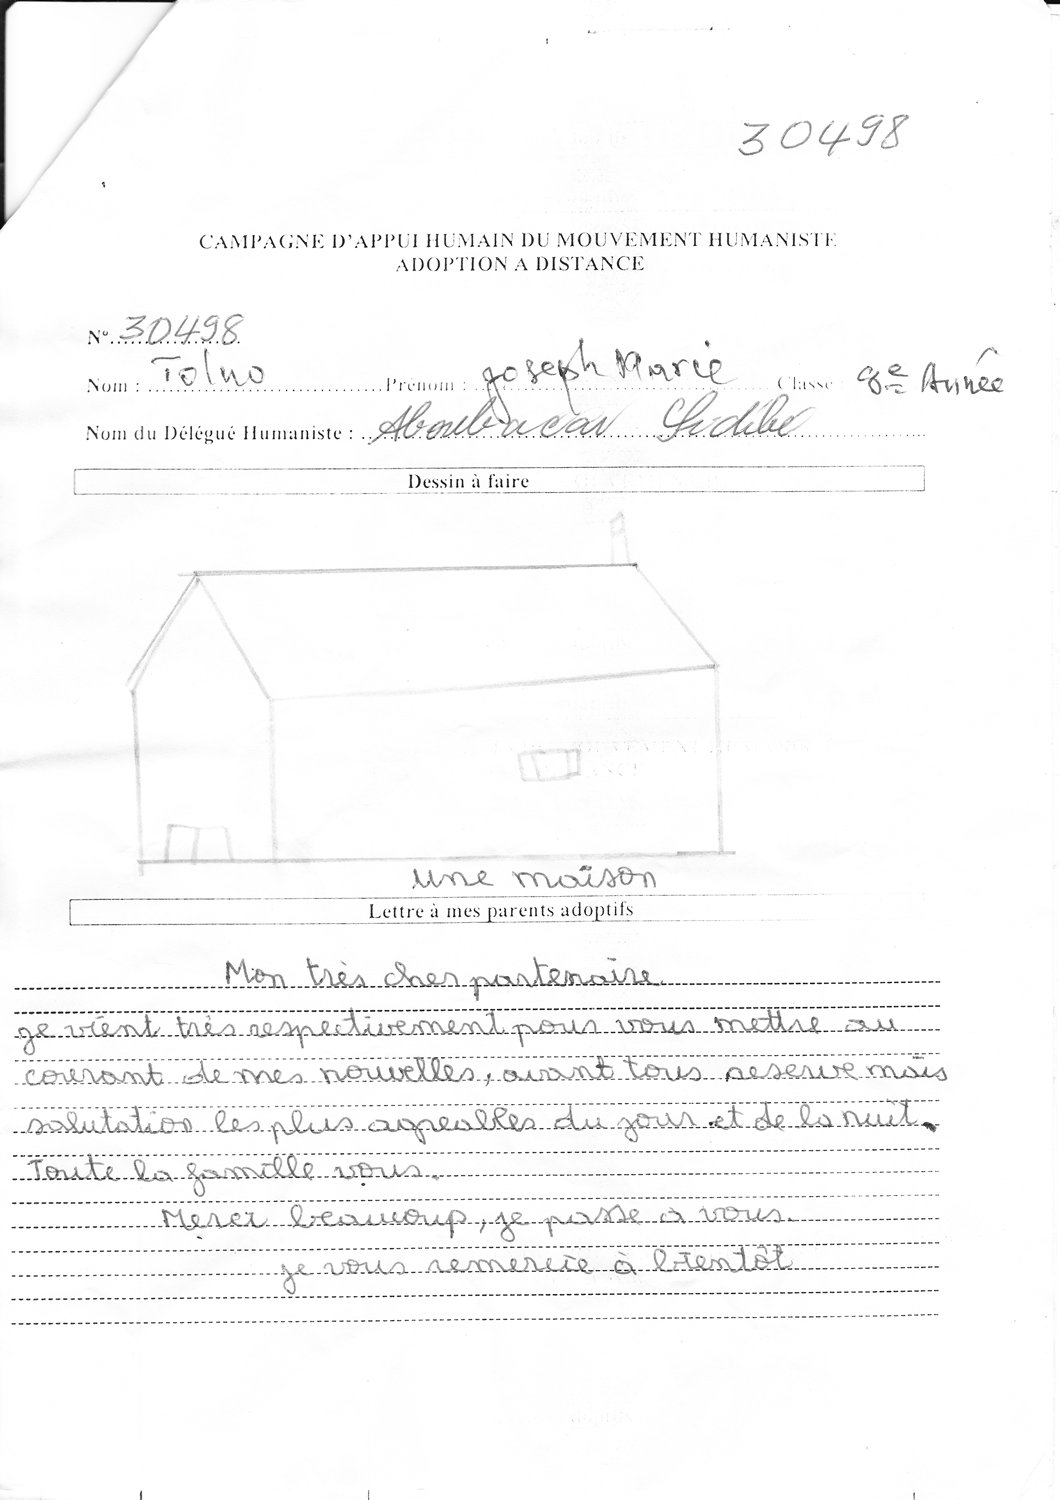 30498
CAMPAGNE D'APPUI HUMAIN DU MOUVEMENT HUMANISTE
ADOPTION A DISTANCE
N° 30498
Nom : Tolno Prénom : Joseph Marie Classe : 8e Année
Nom du Délégué Humaniste : Aboubacar Sidibé
Dessin à faire
une maison
Lettre à mes parents adoptifs
Mon très cher partenaire.
je vient très respectivement pour vous mettre au
courant de mes nouvelles, avant tous reserve mais
salutation les plus agreables du jour et de la nuit.
Toute la famille vous.
Merci beaucoup, je passe a vous.
je vous remercie à bientôt